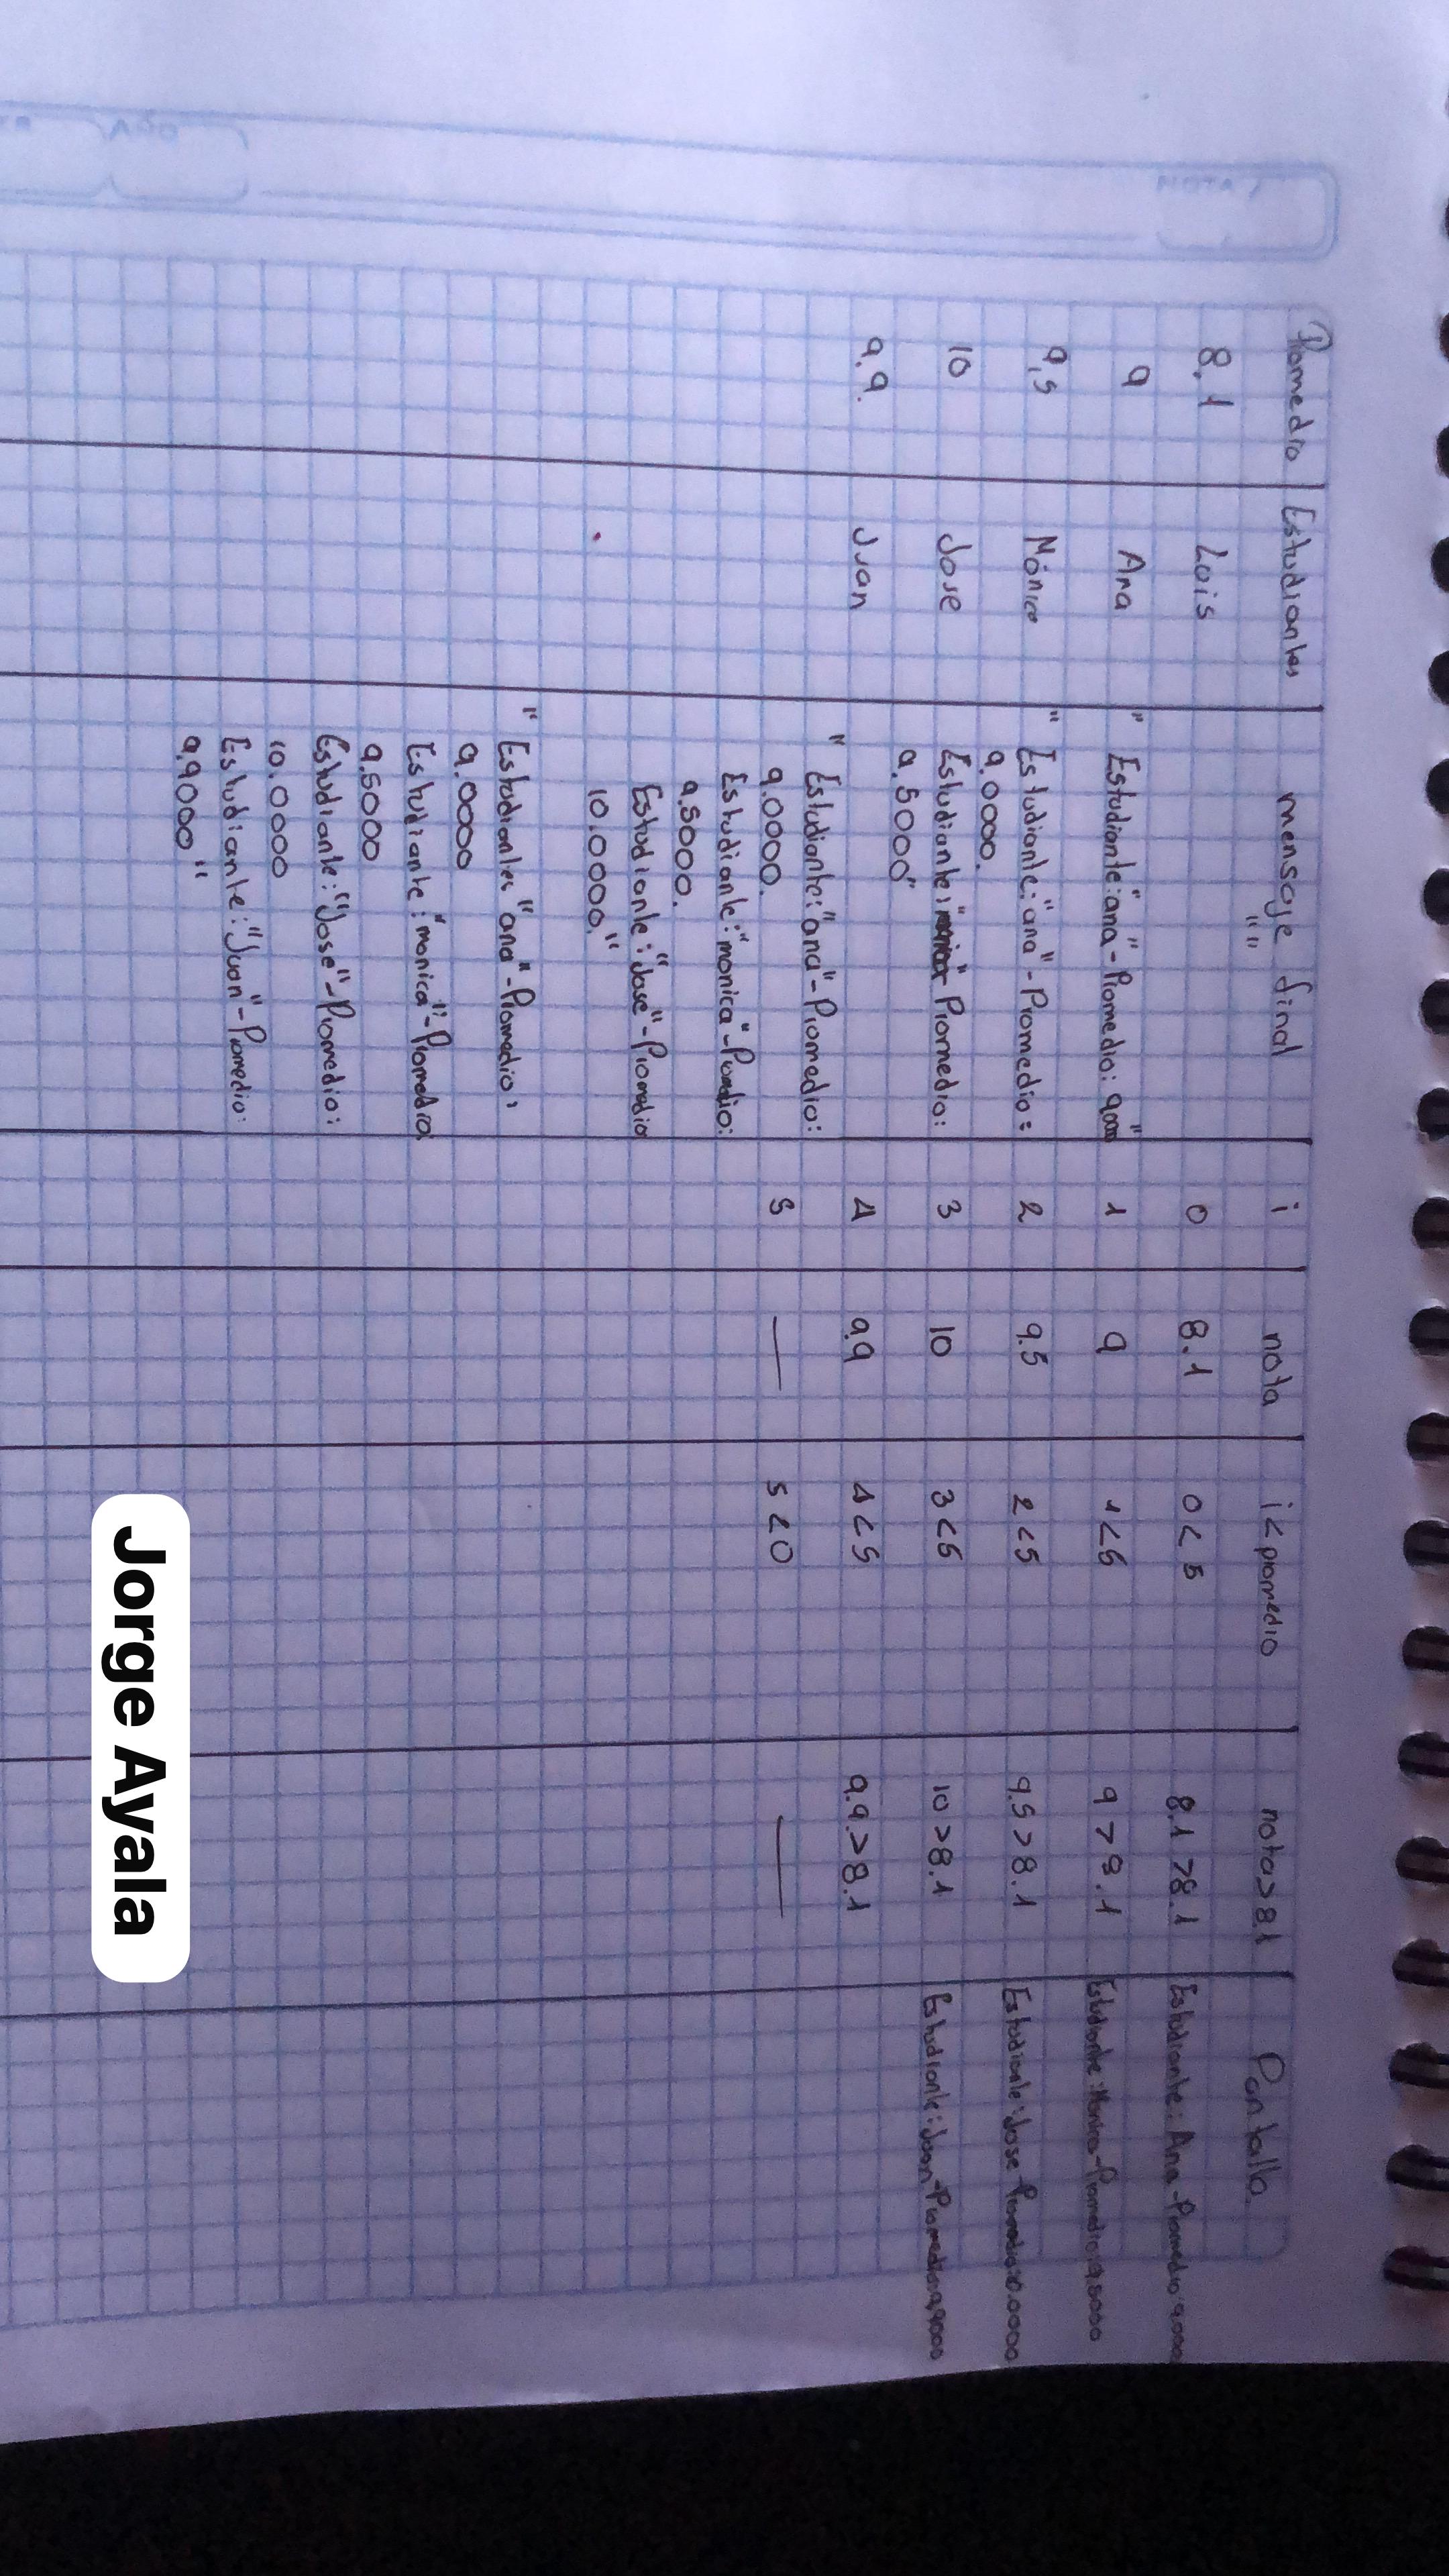 Promedio Estudiantes mensaje final i nota i<promedio nota>8.1 Pantalla
""
8.1 Lois 0 8.1 0<5 8.1>8.1 Estudiante: Ana-Promedio 9.000
9 Ana " Estudiante:"ana"-Promedio: 9.000" 1 9 1<5 9>8.1 Estudiante: Monica-Promedio: 9.5000
9,5 Mónica " Estudiante:"ana"-Promedio: 2 9.5 2<5 9.5>8.1 Estudiante: Jose Promedio:10.0000
9.0000.
10 Jose Estudiante: Promedio: 3 10 3<5 10>8.1 Estudiante: Juan-Promedio:9,9000
9.5000"
9.9. Juan 4 9.9 4<5 9.9.>8.1
" Estudiante:"ana"-Promedio:
9.0000. 5 — 5<0 —
Estudiante:"monica"-Promedio:
9.5000.
Estudiante:"Jose"-Promedio
10.0000."
" Estudiantes "ana"-Promedio:
9.0000
Estudiante:"monica"-Promedio
9.5000
Estudiante:"Jose"-Promedio:
10.0000
Estudiante:"Juan"-Promedio:
9.9000"
Jorge Ayala